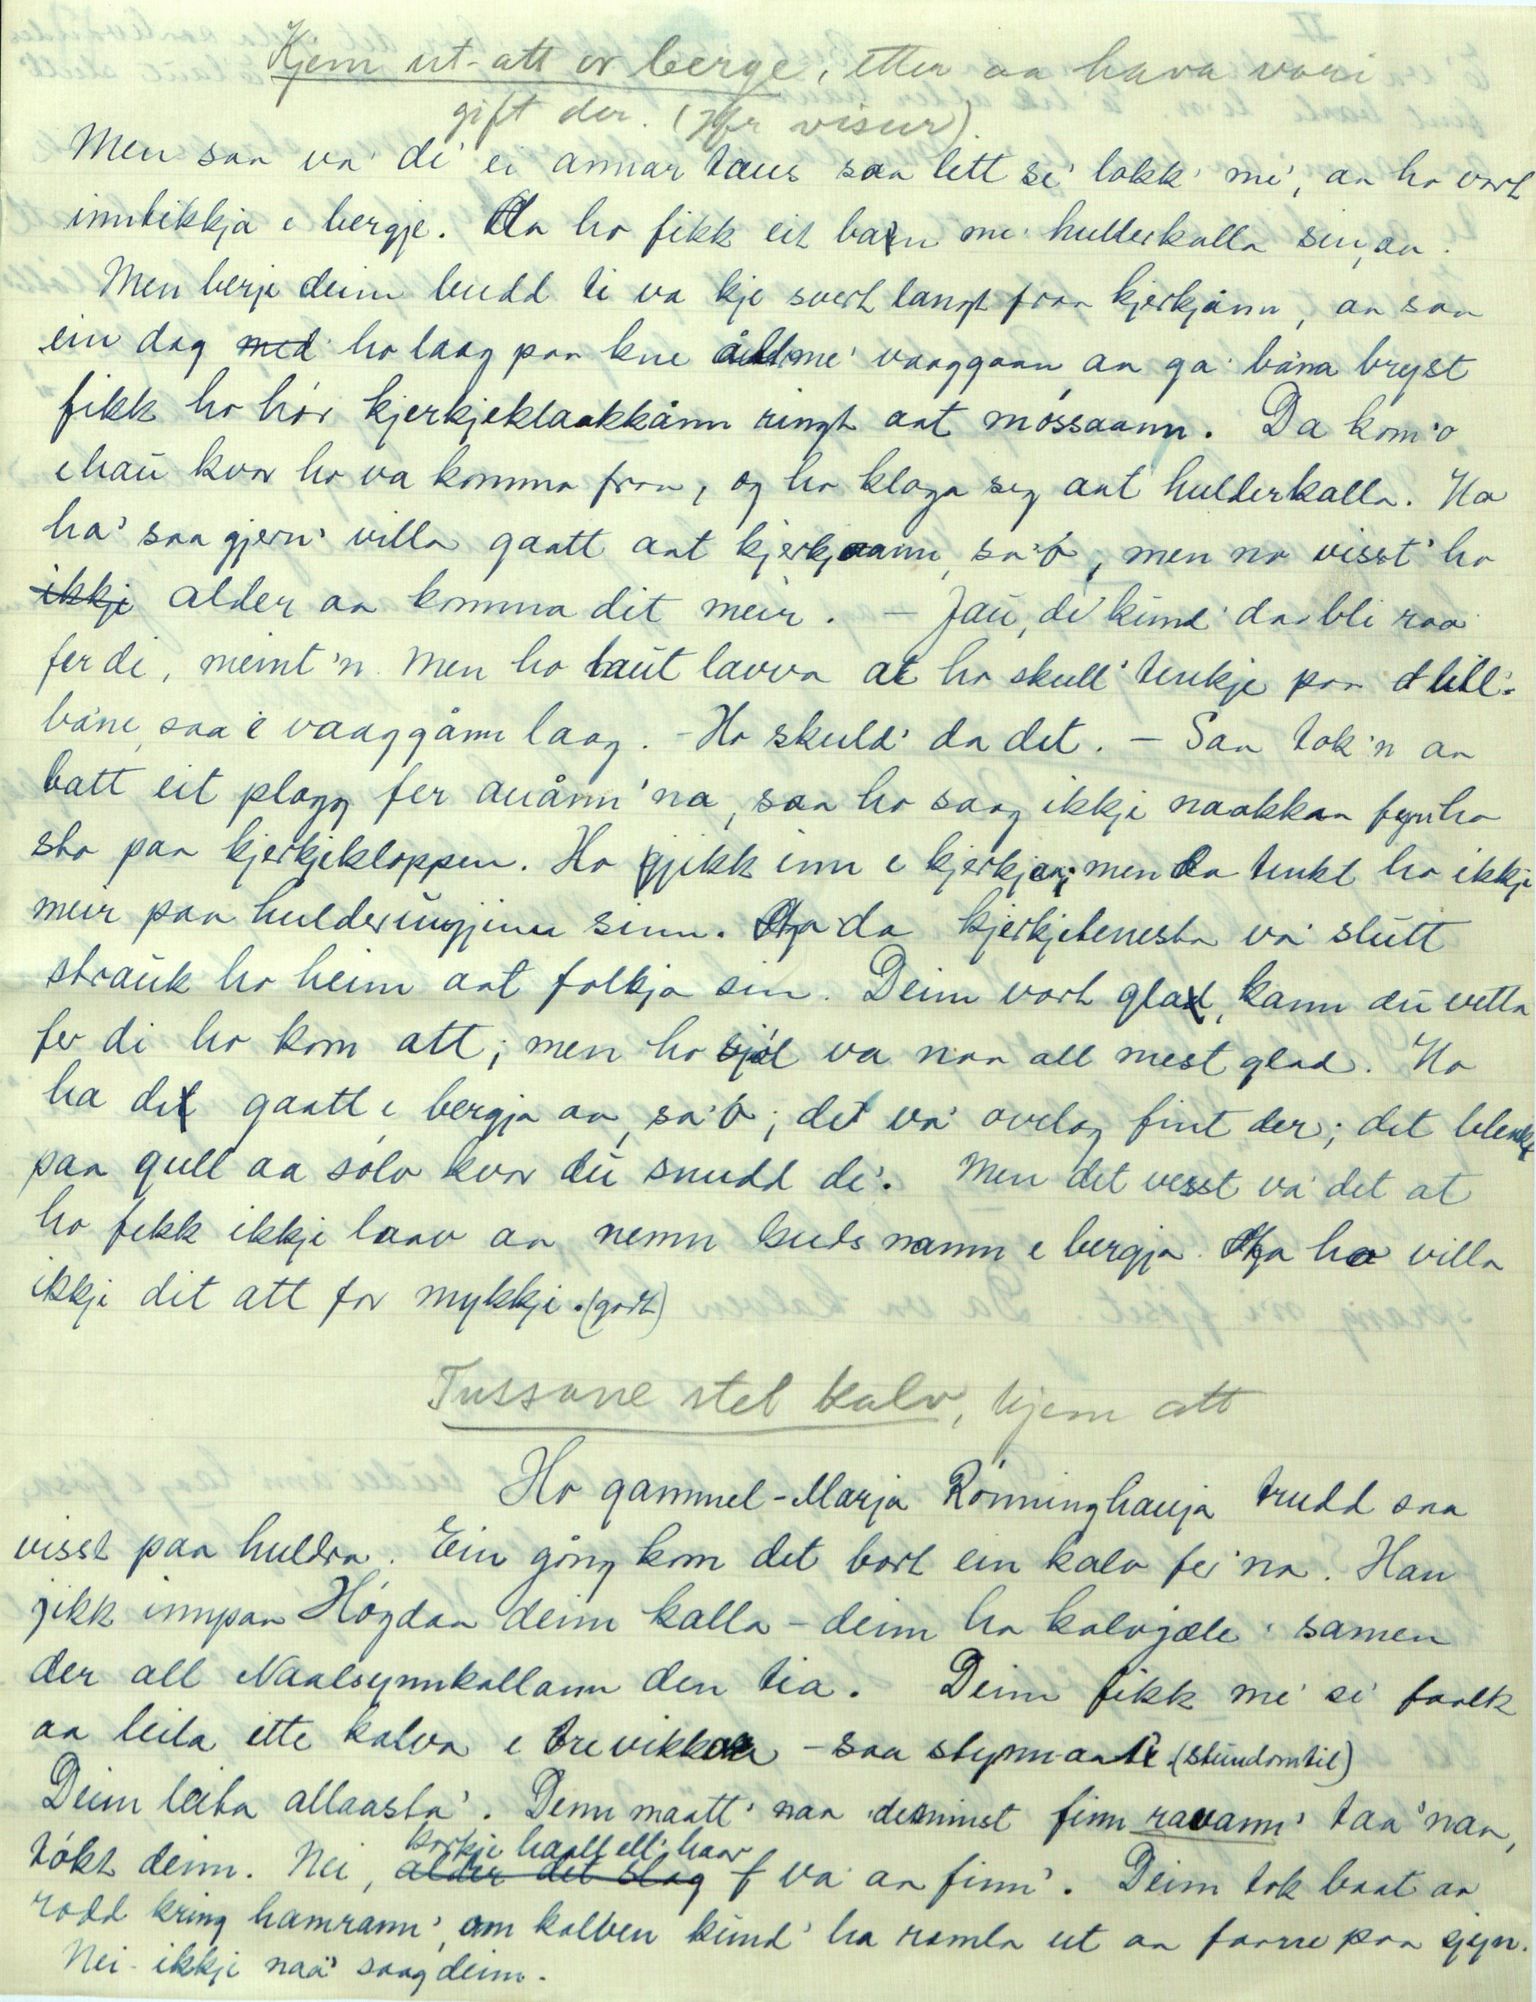 Kjem ut-att or berge, etter aa hava vori
gift der. (Jfr visur).
Men saa va' di' ei annar taus saa lett si' lokk' me', aa ho vart
inntikkja i bergje. Aa ho fikk eit barn me' hullerkalla sin, aa.
Men berje deim budd ti va kje svert langt fraa kjerkjånn, aa saa
ein dag med ho laag paa kne me' vaaggaan aa ga' bana bryst
fikk ho hór kjerkjeklaakkånn ringt aat móssaann. Da kom'o
ihaũ kvar ho va komma fraa, og ho klaga seg aat hulderkalla. Ho
ha' saa gjern' villa gaatt aat kjerkjaann, sa'ó, men no visst' ho
ikkje alder aa komma dit meir. – Jaũ, di' kũnd' da bli raa
fer di, meint'n. Men ho laũt lavva at ho skull' tenkje paa littl'-
bane, saa i vaaggånn laag. - Ho skuld' da det. – Saa tok'n aa
batt eit plagg fer auånn'na, saa ho saag ikkje naakkaa fyrr ho
sto paa kjerkjekloppen. Ho gjikk inn i kjerkja; men da tenkt ho ikkje
meir paa hulderũngjinn sinn. Aa da kjerkjetenesta va' slũtt
straũk ho heim aat folkja sin. Deim vart glad, kann dũ vetta
fer di ho kom att; men ho sjól va naa all mest glad. Ho
ha det gaatt i bergja aa, sa'ó; det va' ovlag fint der; det blenkt
paa gull aa sólv kvar dũ snudd de'. Men det vesst va' det at
ho fekk ikkje laav aa nemn Guds namn i bergja. Aa ho villa
ikkje dit att for mykkje. (godt)
Tussane stel kalv, kjem att
Ho gammel-Marja Rónninghauja trudd saa
visst paa huldra. Ein gång kom det bort ein kalv fer'na. Han
jikk innpaa Hógdaa deim kalla – deim ha kalvjæle' samen
der all Naalsynnkallann den tia. Deim fikk me' se' faalk
aa leita ette kalva i tre vikkaa – saa stynn-aat'. (stundomtil)
Deim leita allaasta'. Deim maatt' naa deminst finn ravann' taa'naa,
korkje haatt ell' haar
tókt deim. Nei, alder det slag va' aa finn'. Deim tok baat aa
rodd kring hamrann', om kalven kũnd' ha ramla ut aa faare paa sjyn.
Nei - ikkje naa' saag deim.